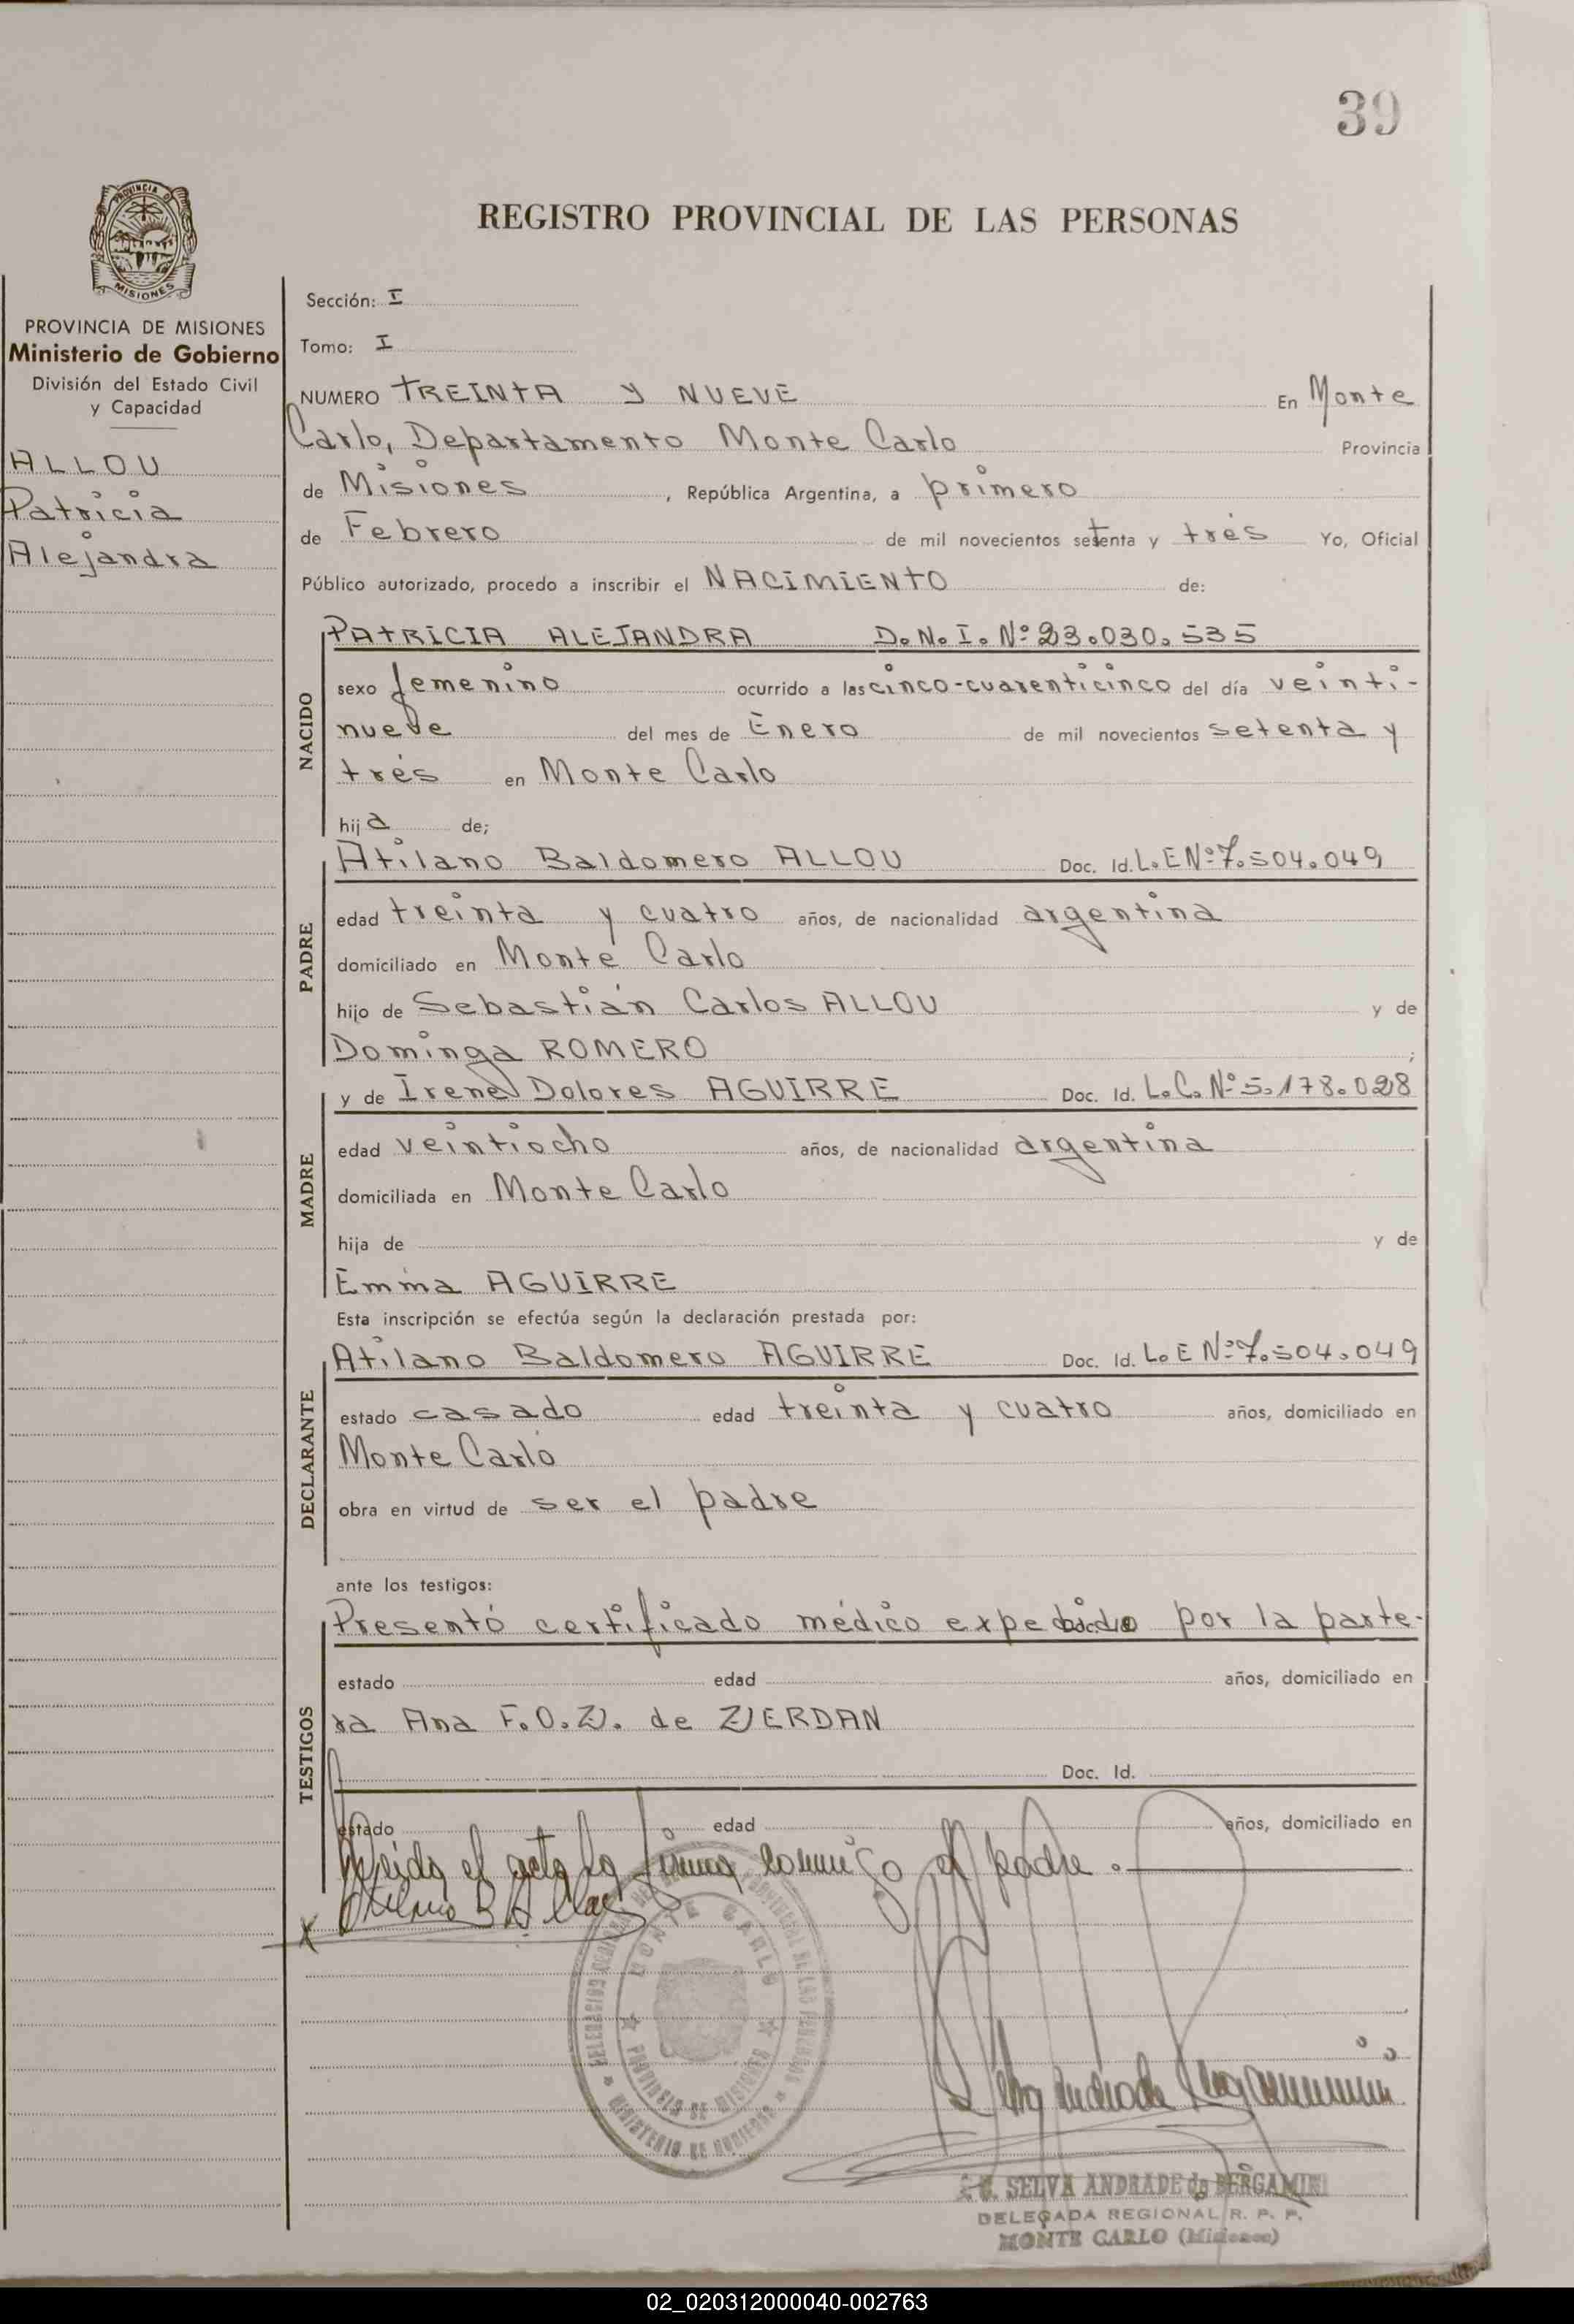 39
PROVINCIA DE
MISIONES
REGISTRO PROVINCIAL DE LAS PERSONAS
PROVINCIA DE MISIONES
Ministerio de Gobierno
División del Estado Civil
y Capacidad
ALLOU
Patricia
Alejandra
Sección: I
Tomo: I
NUMERO TREINTA Y NUEVE En Monte
Carlo, Departamento Monte Carlo Provincia
de Misiones, República Argentina, a primero
de Febrero de mil novecientos setenta y trés Yo, Oficial
Público autorizado, procedo a inscribir el NACIMIENTO de:
NACIDO
PATRICIA ALEJANDRA D.N.I. Nº 23.030.535
sexo femenino ocurrido a las cinco-cuarenticinco del día veinti-
nueve del mes de Enero de mil novecientos setenta y
trés en Monte Carlo
hija de;
PADRE
Atilano Baldomero ALLOU Doc. Id. L.E Nº 7.504.049
edad treinta y cuatro años, de nacionalidad argentina
domiciliado en Monte Carlo
hijo de Sebastián Carlos ALLOU y de
Dominga ROMERO ;
MADRE
y de Irene Dolores AGUIRRE Doc. Id. L.C. Nº 5.178.028
edad veintiocho años, de nacionalidad argentina
domiciliada en Monte Carlo
hija de y de
Emma AGUIRRE
Esta inscripción se efectúa según la declaración prestada por:
DECLARANTE
Atilano Baldomero AGUIRRE Doc. Id. L.E Nº 7.504.049
estado casado edad treinta y cuatro años, domiciliado en
Monte Carlo
obra en virtud de ser el padre
ante los testigos:
TESTIGOS
Presentó certificado médico por la parte-
estado edad años, domiciliado en
ra Ana F.O.Z. de ZERDAN
Doc. Id.
estado edad años, domiciliado en
leida el acta la firma conmigo el padre.
X Atilano B Allou
MONTE CARLO
PROVINCIA DE MISIONES
MINISTERIO DE GOBIERNO
Selva Andrade Bergamini
SELVA ANDRADE de BERGAMINI
DELEGADA REGIONAL R. P. P.
MONTE CARLO (Misiones)
02_020312000040-002763